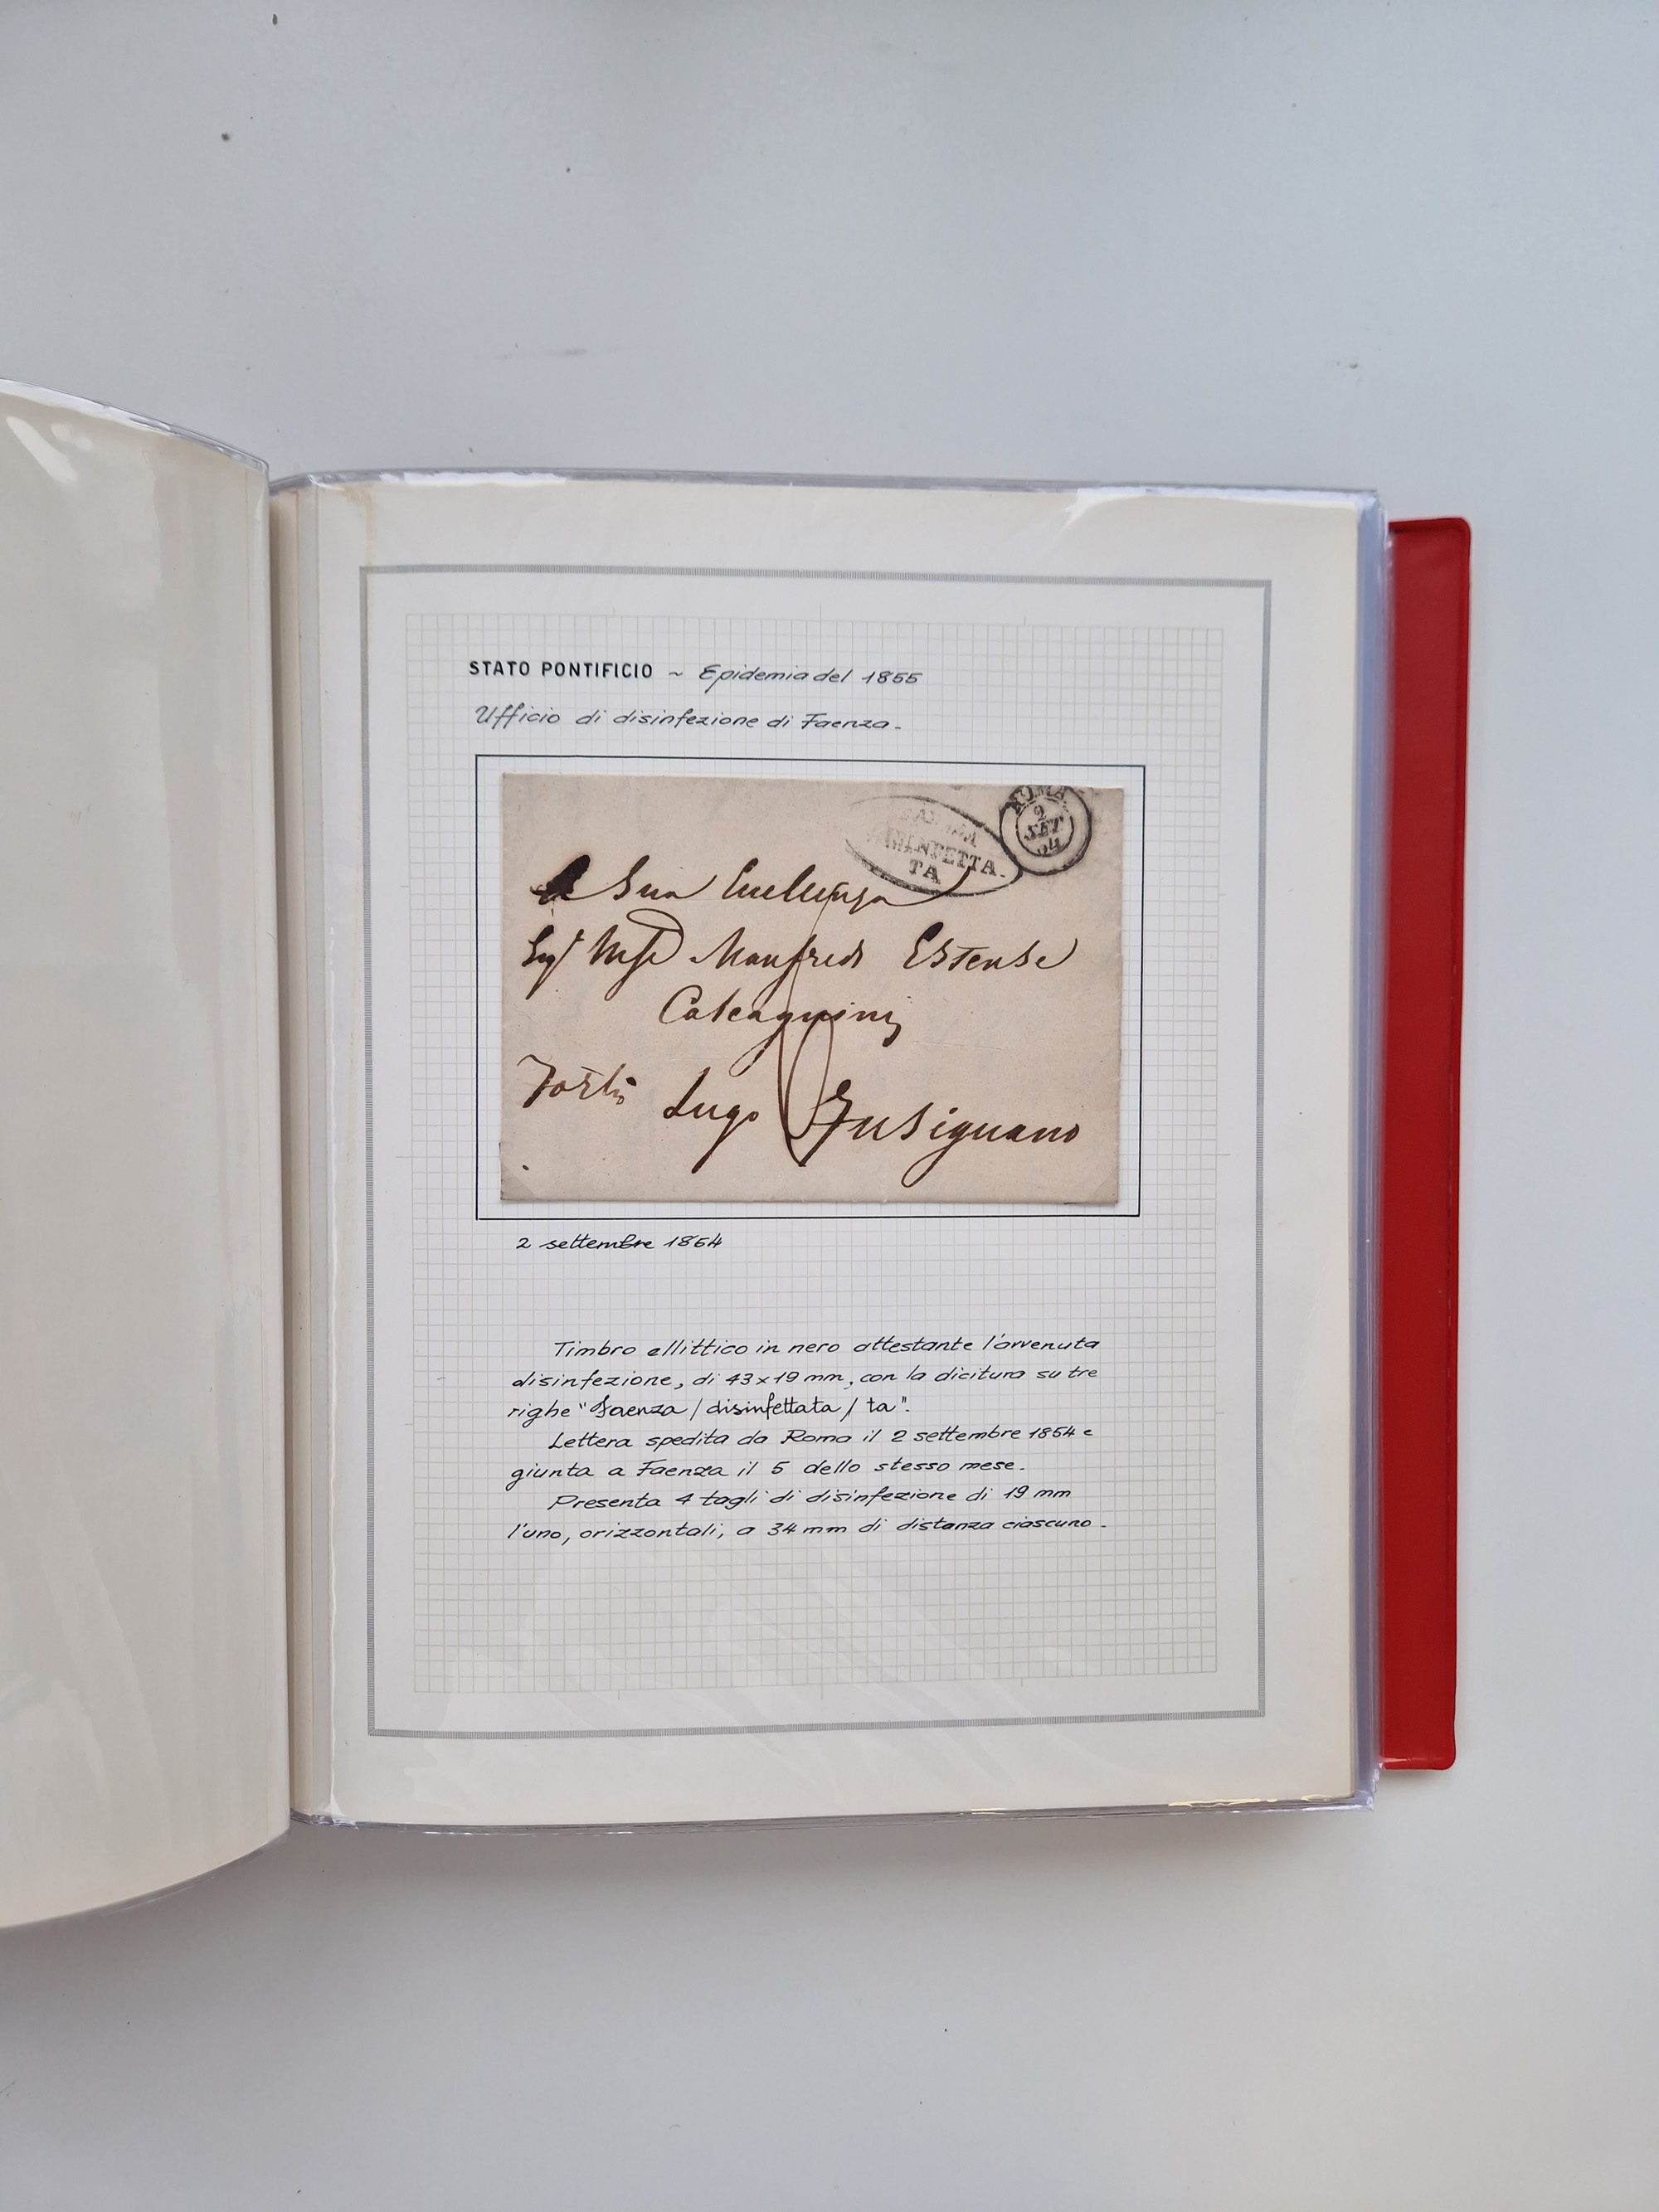 STATO PONTIFICIO ~ Epidemia del 1855
Ufficio di disinfezione di Faenza.
ROMA
2
SET
54
DISINFETTA
TA
A Sua Eccellenza
Manfredi Estense
Calcagnini
Forlì Lugo Fusignano
2 settembre 1854
Timbro ellittico in nero attestante l'avvenuta
disinfezione, di 43x19 mm, con la dicitura su tre
righe "Faenza / disinfettata / ta".
Lettera spedita da Roma il 2 settembre 1854 e
giunta a Faenza il 5 dello stesso mese.
Presenta 4 tagli di disinfezione di 19 mm
l'uno, orizzontali, a 34 mm di distanza ciascuno.